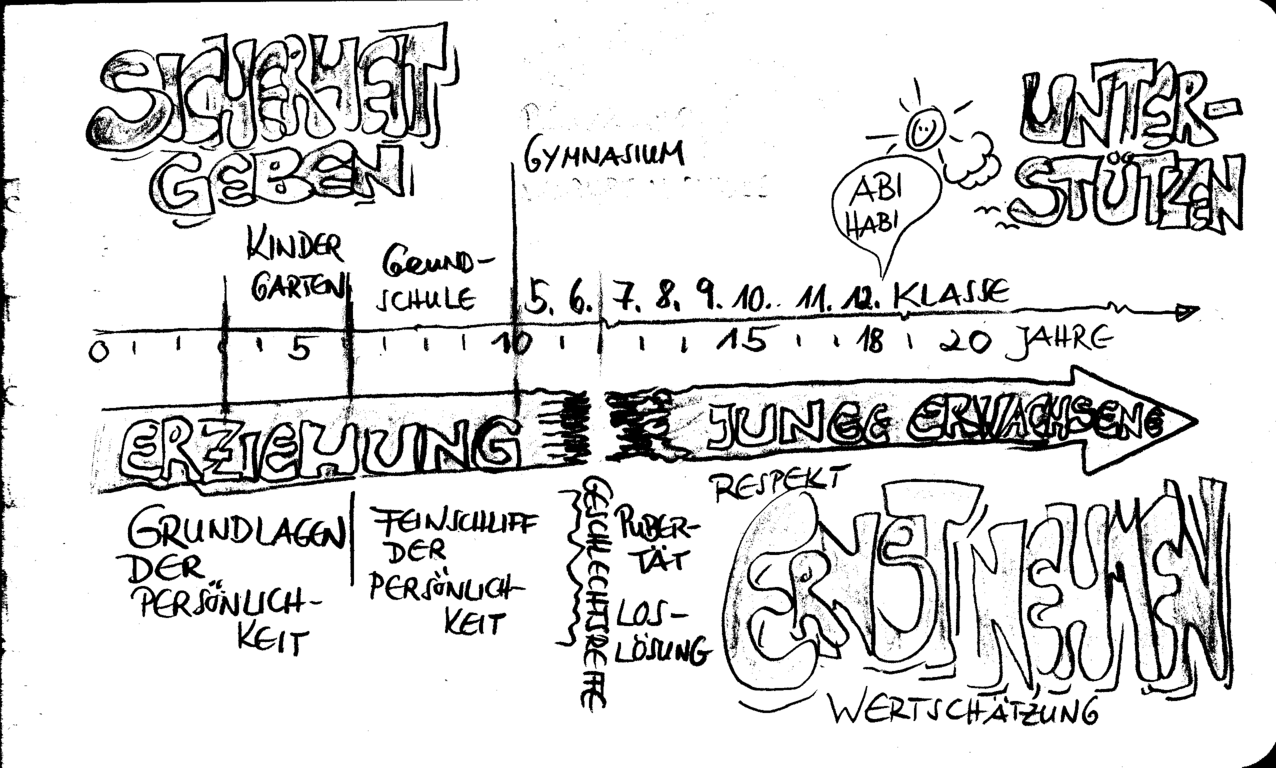 SICHERHEIT
GEBEN
UNTER-
STÜTZEN
GYMNASIUM
ABI
HABI
KINDER
GARTEN
GRUND-
SCHULE
5. 6. 7. 8. 9. 10. 11. 12. KLASSE
0 5 10 15 18 20 JAHRE
ERZIEHUNG
JUNGE ERWACHSENE
GRUNDLAGEN
DER
PERSÖNLICH-
KEIT
FEINSCHLIFF
DER
PERSÖNLICH-
KEIT
GESCHLECHTSREIFE
PUBER-
TÄT
LOS-
LÖSUNG
RESPEKT
ERNST NEHMEN
WERTSCHÄTZUNG